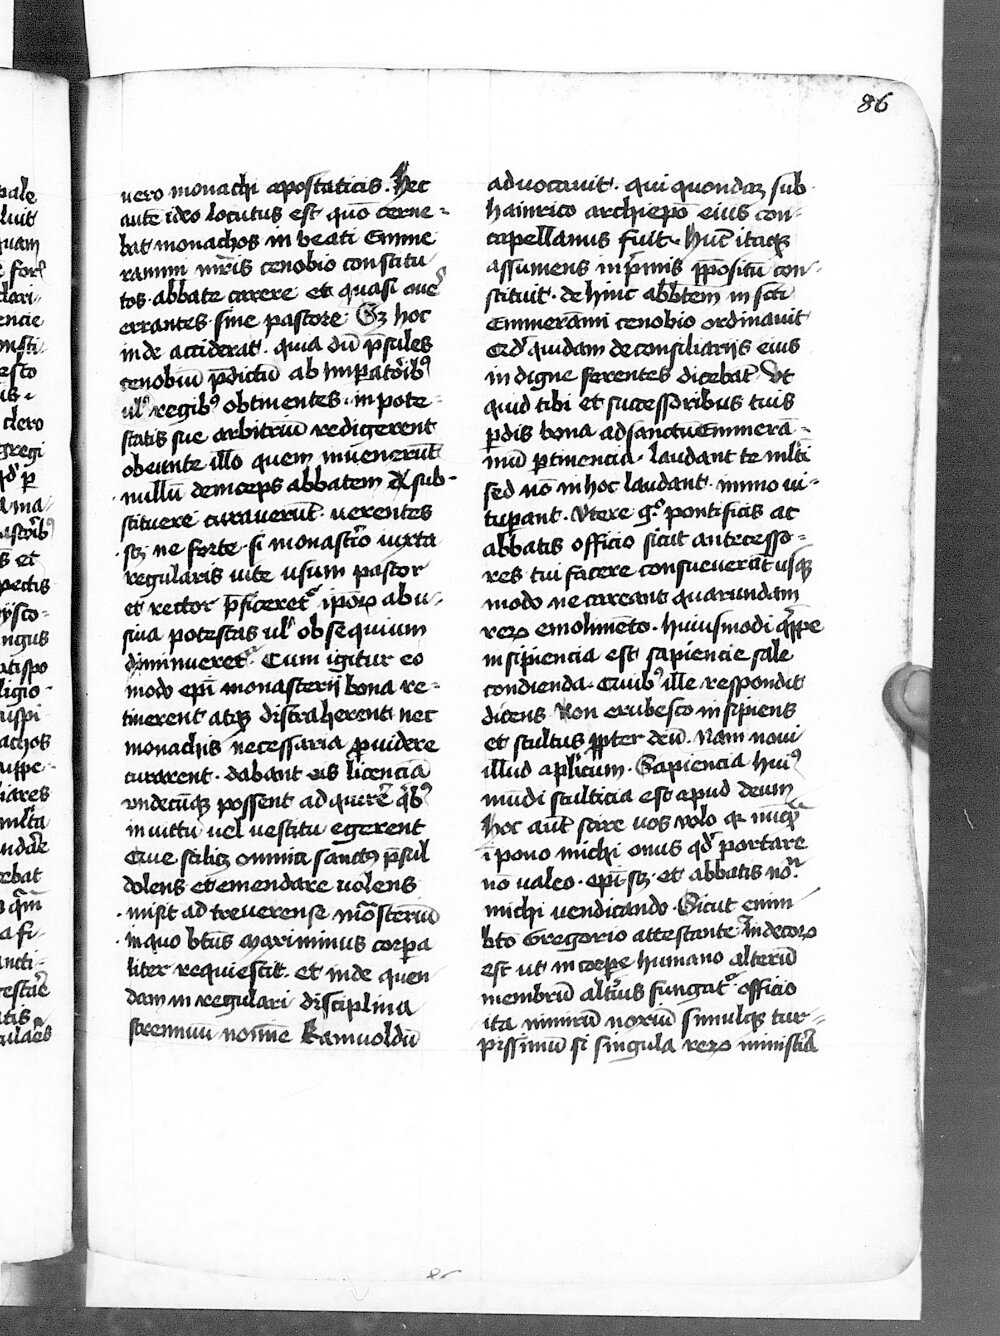 86
vero monachi apostaticis. Hec
autē ideo locutus est quō cerne-
bat monachos in beati Emme
rammi mr̄is cenobio constitu
tos abbate carere et quasi oues
errantes sine pastore. Sz hoc
inde acciderat. quia dū p̄sules
cenobiū p̄dictū ab Imperatōibꝰ
ul' regibꝰ obtinentes. in pote-
statis sue arbitriū redigerent
obeunte illo quem invenerūt
nullū deinceps abbatem sub-
stituere curaverūt. verentes
sz ne forte si monastrīo iuxta
regularis vite usum pastor
et rector p̄ficeret' ipōꝝ abu-
siva potestas ul' obsequium
diminueret'. Cum igitur eo
modo ep̄i monasterij bona re-
tinerent atqꝫ distraherent nec
monachis necessaria ꝓvidere
curarent. dabant eis licenciā
vndecūqꝫ possent adquirē q̄ibꝰ
in victu vel vestitu egerent
Que scilicꝫ omnia sanctꝰ p̄sul
dolens et emendare volens
misit ad treverense mōasteriū
in quo btūs Maximinus corpa
liter requiescit. et inde quen
dam in regulari disciplina
strennuū noīne Ramuoldū
advocavit. qui quondaꝫ sub
hainrico archiepō eius con-
capellanus fuit. Hūc itaqꝫ
assumens inp̄mis p̄positū con-
stituit. dehinc abbtem in scti
Emmerāmi cenobio ordinavit
Qd' quidam de consiliarijs eius
indigne ferentes dicebāt. Vt
quid tibi et successoribus tuis
ꝑdis bona ad sanctū Emmerā-
mū ꝑtinencia. laudant te mlti
sed nō in hoc laudant. immo vi-
tupant. Vtere g° pontificis ac
abbatis officio sicut antecesso-
res tui facere consueverāt usqꝫ
modo ne careant quarundam
reꝝ emolimēto. huiusmodi q̄ippe
insipiencia est sapiencie sale
condienda. Quibꝰ ille respondit
dicens Non erubesco insipiens
et stultus ꝓpter deū. Nam novi
illud aplicum. Sapiencia huiꝰ
mūdi stulticia est apud deum
hoc aut' scire vos volo q nūq̄
īpono michi onus qd' portare
nō valeo. epī sz et abbatis nō
michi vendicando. Sicut enim
bto Gregorio attestante Indecoꝝ
est ut in corpe humano alterū
membrū altīus fungat' officio
ita nimirū noxiū simulqꝫ tur-
pissimū si singula reꝝ ministīa